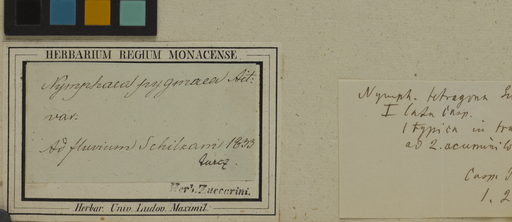 HERBARIUM REGIUM MONACENSE
Nymphaea pygmaea Ait:
var.
Ad fluvium Schilkam 1833
Turcz.
Herb. Zuccarini.
Herbar. Univ. Ludov. Maximil.
Nymph. tetragona
I lata Casp.
1 typica in
ad 2. acumin
Casp.
1. 2